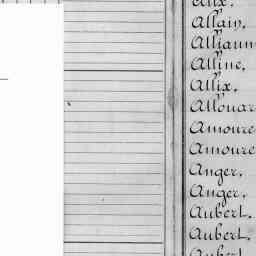 Alix,
Allain,
Alliaum
Alline,
Allix,
Allouar
Amoure
Amoure
Anger,
Anger,
Aubert,
Aubert,
Aubert